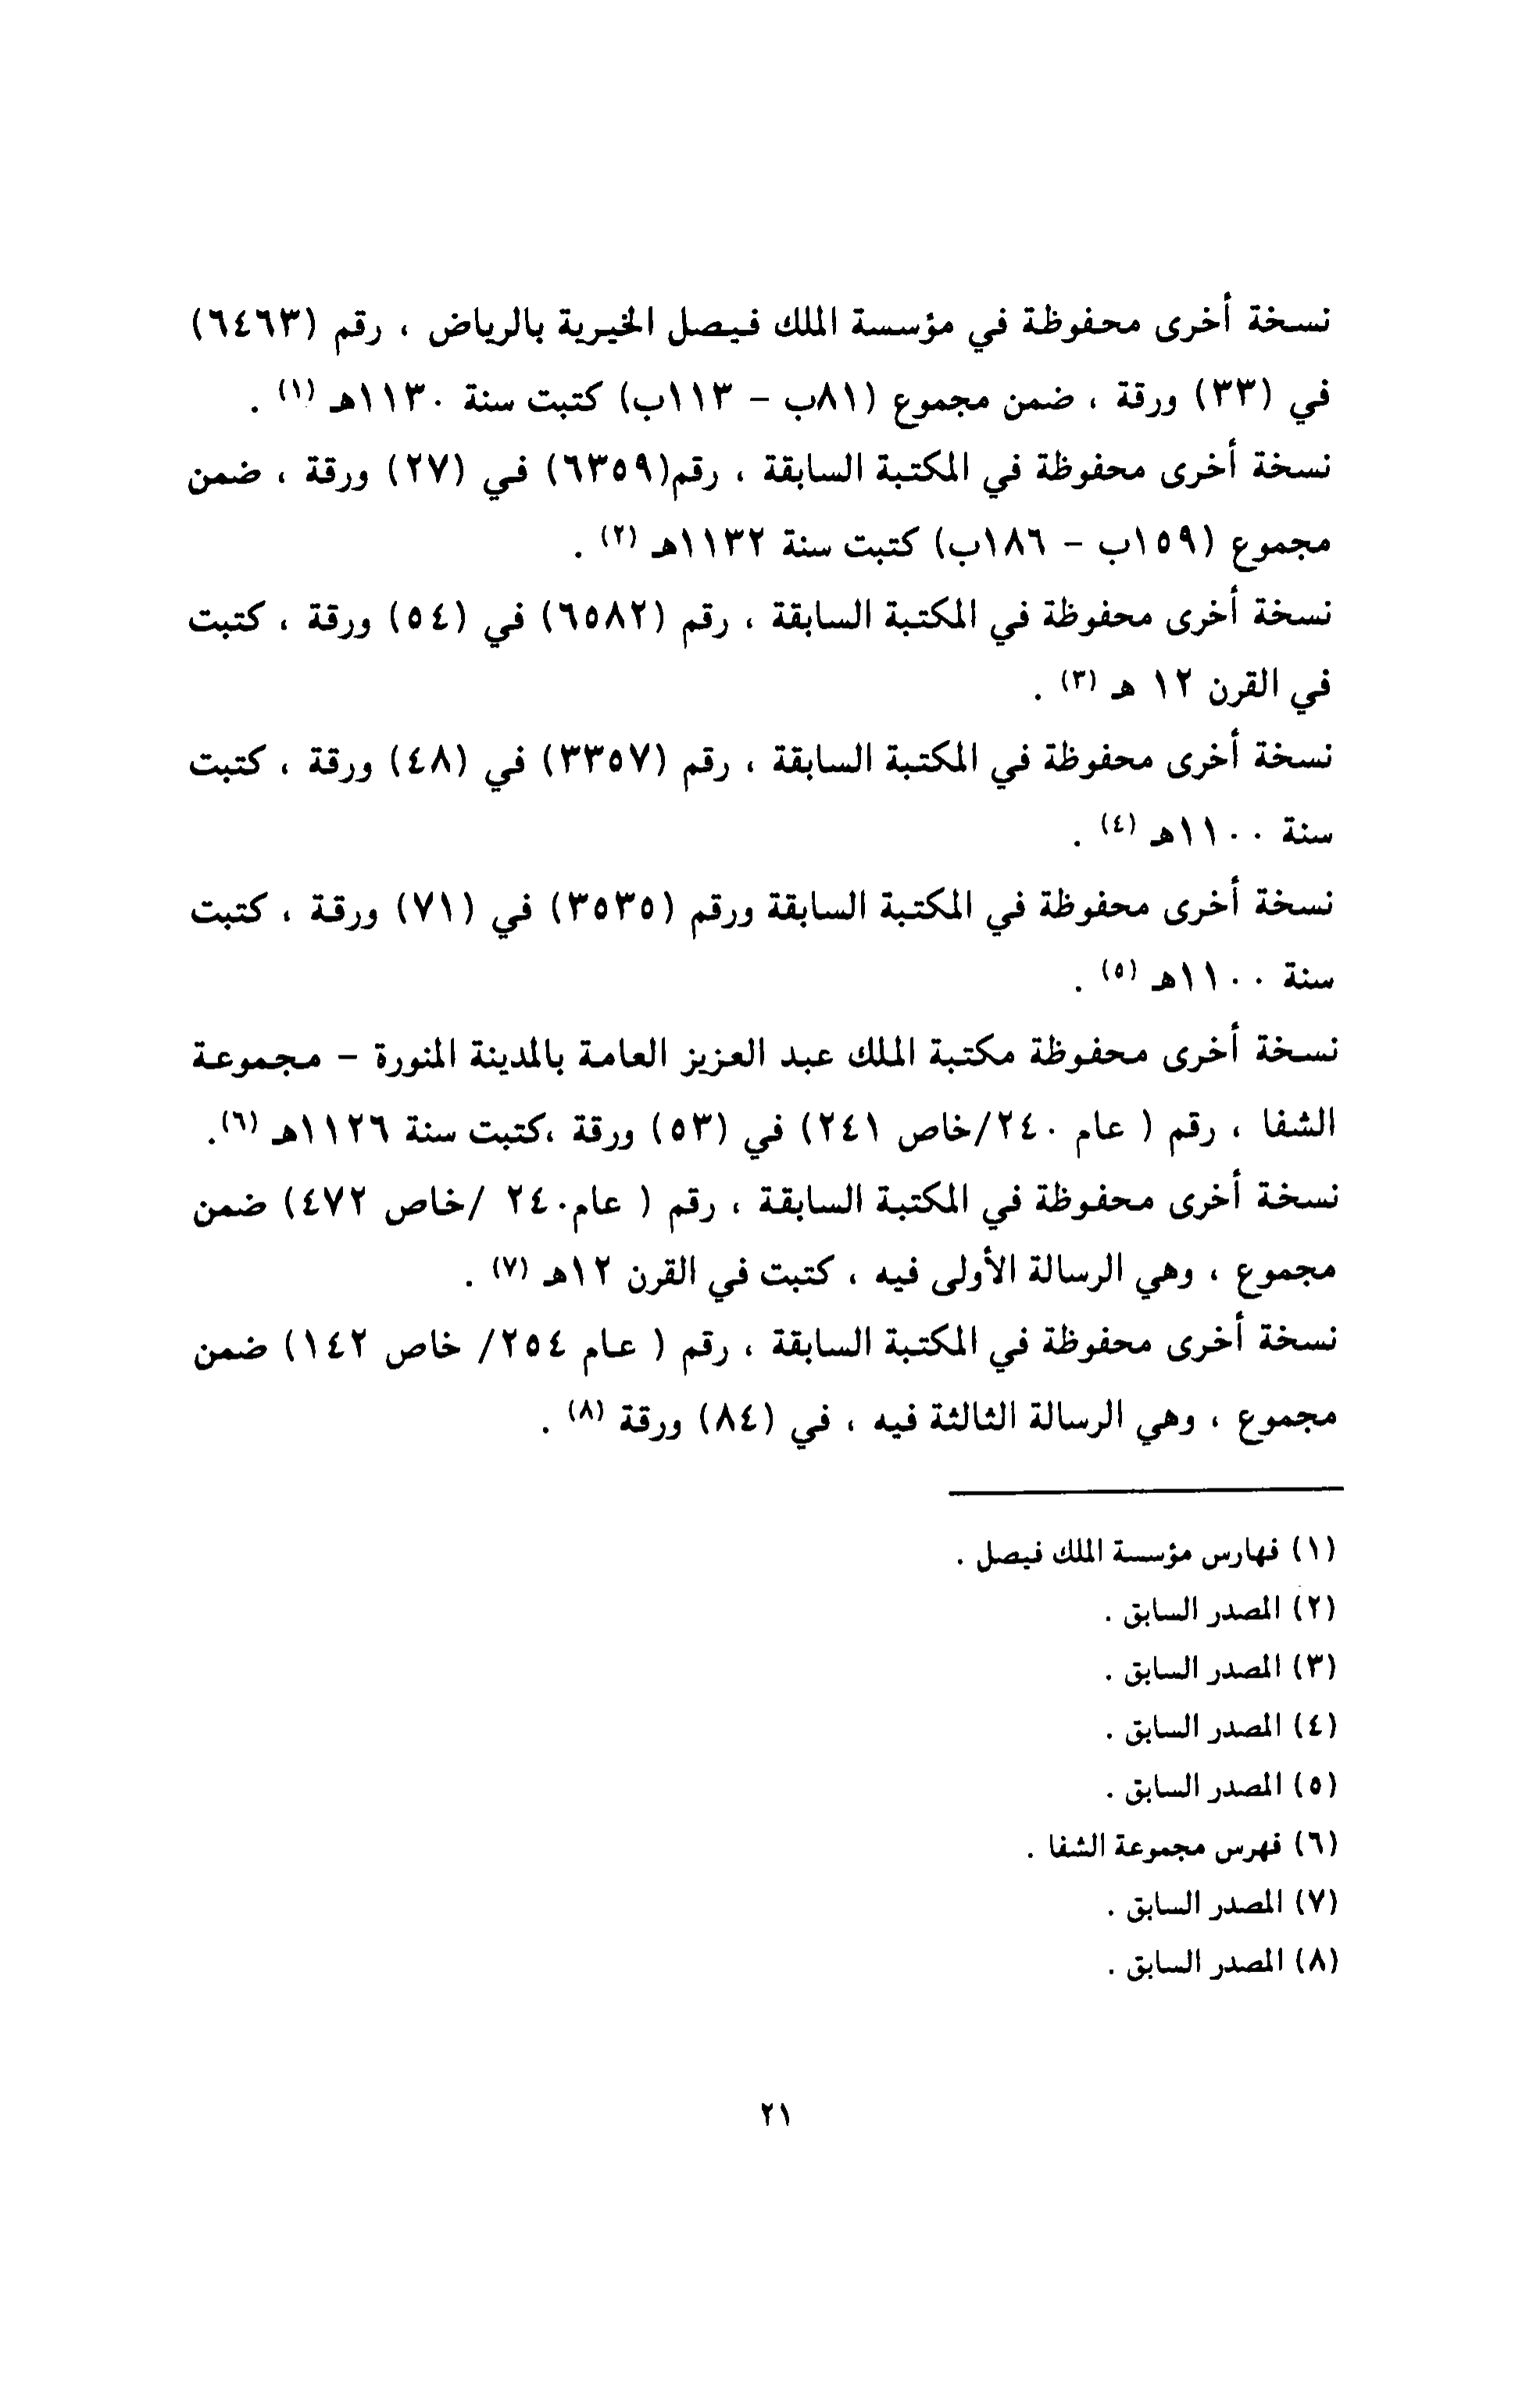 نسخة أخرى محفوظة في مؤسسة الملك فيصل الخيرية بالرياض ، رقم (٦٤٦٣)
في (٣٣) ورقة ، ضمن مجموع (٨١ب – ١١٣ب) كتبت سنة ١١٣٠هـ (١) .
نسخة أخرى محفوظة في المكتبة السابقة ، رقم(٦٣٥٩) في (٢٧) ورقة ، ضمن
مجموع (١٥٩ب – ١٨٦ب) كتبت سنة ١١٣٢هـ (٢) .
نسخة أخرى محفوظة في المكتبة السابقة ، رقم (٦٥٨٢) في (٥٤) ورقة ، كتبت
في القرن ١٢ هـ (٣) .
نسخة أخرى محفوظة في المكتبة السابقة ، رقم (٣٣٥٧) في (٤٨) ورقة ، كتبت
سنة ١١٠٠هـ (٤) .
نسخة أخرى محفوظة في المكتبة السابقة ورقم (٣٥٣٥) في (٧١) ورقة ، كتبت
سنة ١١٠٠هـ (٥) .
نسخة أخرى محفوظة مكتبة الملك عبد العزيز العامة بالمدينة المنورة – مجموعة
الشفا ، رقم ( عام ٢٤٠/خاص ٢٤١) في (٥٣) ورقة ،كتبت سنة ١١٢٦هـ (٦).
نسخة أخرى محفوظة في المكتبة السابقة ، رقم ( عام٢٤٠ /خاص ٤٧٢) ضمن
مجموع ، وهي الرسالة الأولى فيه ، كتبت في القرن ١٢هـ (٧) .
نسخة أخرى محفوظة في المكتبة السابقة ، رقم ( عام ٢٥٤/ خاص ١٤٢) ضمن
مجموع ، وهي الرسالة الثالثة فيه ، في (٨٤) ورقة (٨) .
(١) فهارس مؤسسة الملك فيصل .
(٢) المصدر السابق .
(٣) المصدر السابق .
(٤) المصدر السابق .
(٥) المصدر السابق .
(٦) فهرس مجموعة الشفا .
(٧) المصدر السابق .
(٨) المصدر السابق .
٢١